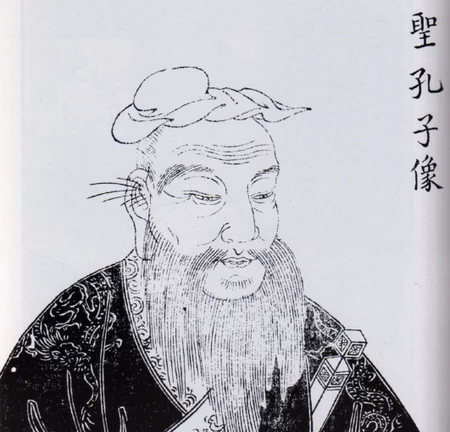 聖孔子像